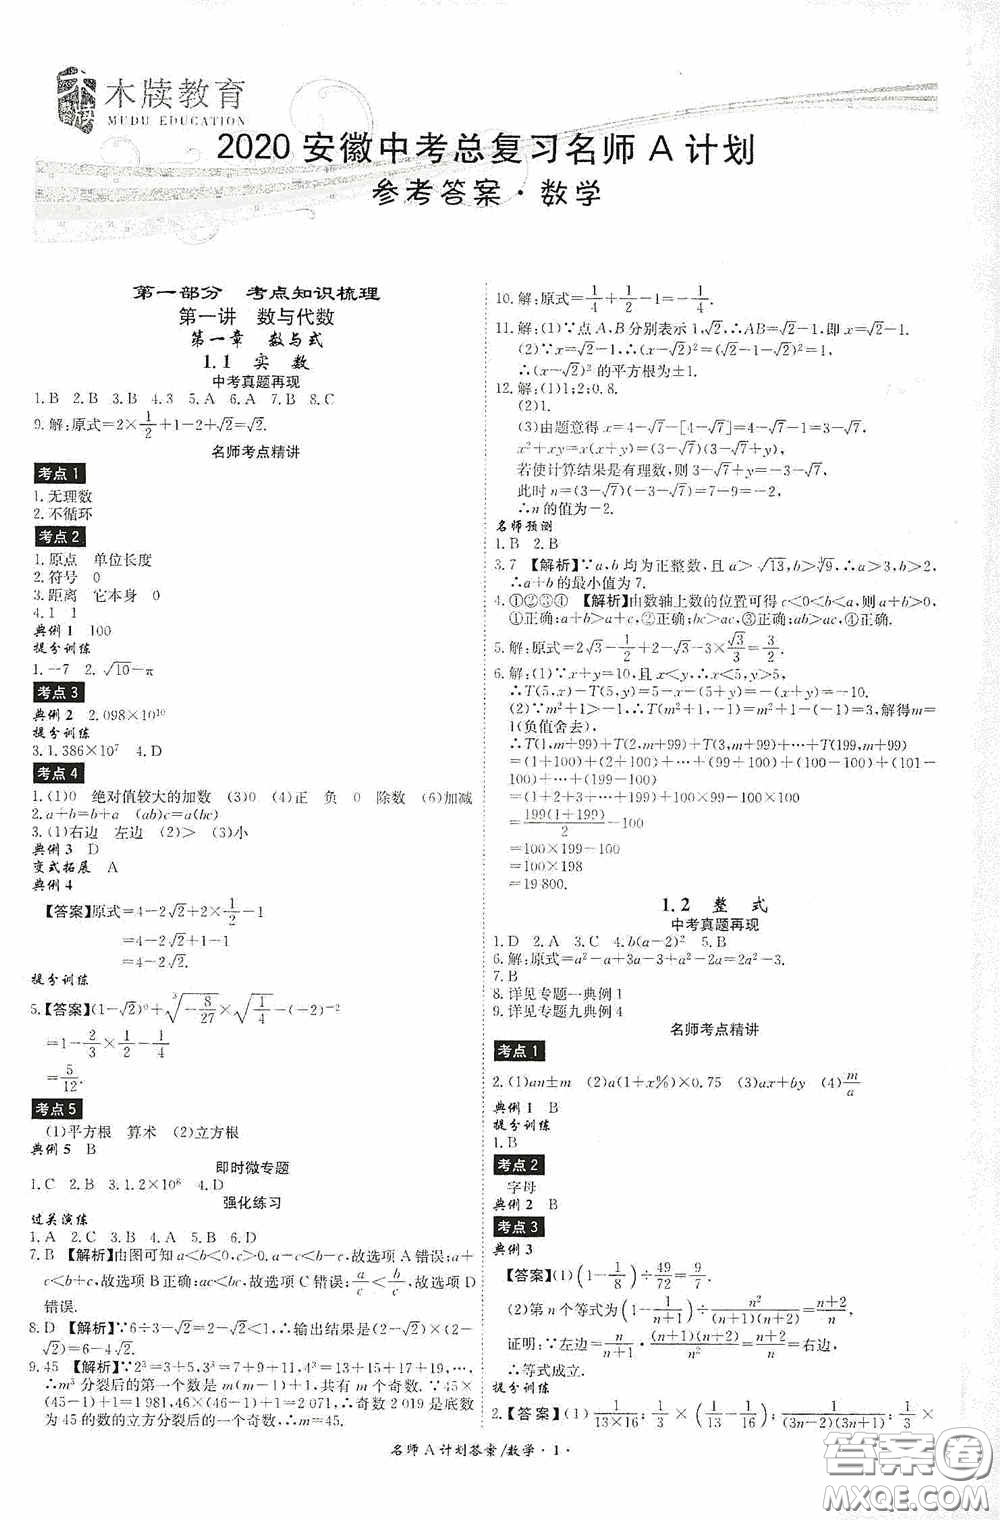 木牍教育
MUDU EDUCATION
2020 安徽中考总复习名师 A 计划
参考答案·数学
第一部分 考点知识梳理
第一讲 数与代数
第一章 数与式
1.1 实 数
中考真题再现
1.B 2.B 3.B 4.3 5.A 6.A 7.B 8.C
9.解:原式=2×1/2+1-2+√2=√2.
名师考点精讲
考点 1
1.无理数
2.不循环
考点 2
1.原点 单位长度
2.符号 0
3.距离 它本身 0
4.1 1
典例 1 100
提分训练
1.-7 2.√10-π
考点 3
典例 2 2.098×10¹⁰
提分训练
3.1.386×10⁷ 4.D
考点 4
1.(1)0 绝对值较大的加数 (3)0 (4)正 负 0 除数 (6)加减
2.a+b=b+a (ab)c=a(bc)
3.(1)右边 左边 (2)> (3)小
典例 3 D
变式拓展 A
典例 4
【答案】原式=4-2√2+2×1/2-1
=4-2√2+1-1
=4-2√2.
提分训练
5.【答案】(1-√2)⁰+∛(-8/27)×√(1/4)-|-0.5|²
=1-2/3×1/2-1/4
=5/12.
考点 5
(1)平方根 算术 (2)立方根
典例 5 B
即时微专题
1.C 2.B 3.1.2×10⁸ 4.D
强化练习
过关演练
1.A 2.C 3.B 4.A 5.B 6.D
7.B 【解析】由图可知a<b<0,c>0.a-c<b-c,故选项A错误;a+
c<b+c,故选项B正确;ac<bc,故选项C错误;a/c<b/c,故选项D
错误.
8.D 【解析】∵6÷3-√2=2-√2<1,∴输出结果是(2-√2)(3-
√2)=6-4√2.
9.45 【解析】∵2³=3+5,3³=7+9+11,4³=13+15+17+19,…,
∴m³分裂后的第一个数是m(m-1)+1,共有m个奇数.∵45×
(45-1)+1=1 981,46×(46-1)+1=2 071,∴奇数2 019是底数
为45的数的立方分裂后的一个奇数,∴m=45.
10.解:原式=1/4+1/2-1=-1/4.
11.解:(1)∵点A,B分别表示1,√2,∴AB=√2-1,即x=√2-1.
(2)∵x=√2-1,∴(x-√2)²=(√2-1-√2)²=1,
∴(x-√2)²的平方根为±1.
12.解:(1)1;2;0.8.
(2)1.
(3)由题意得x=4-√7-[4-√7]=3-√7,y=√7,
x²+xy=x(x+y)=(3-√7)(3-√7+√7)=3(3-√7),
若使计算结果是有理数,则3-√7=-n(3+√7),
此时n(3-√7)(3+√7)=7-9=-2,
∴n的值为-2.
名师预测
1.B 2.B
3.7 【解析】∵a,b均为正整数,且a>√13,b>∛9,∴a>3,b>2,
∴a+b的最小值为7.
4.①②③④ 【解析】由数轴上数的位置可得c<0<b<a,则a+b>0,
①正确;a+b>a+c,②正确;bc>ac,③正确;ab>ac,④正确.
5.解:原式=2√3-1/2+2-√3-3×√3/3=3/2.
6.解:(1)∵x+y=10,且x<y,∴x<5,y>5,
∴T(5,x)-T(5,y)=5-x-(5+y)=-x-y=-(x+y)=-10.
(2)∵m²+1>-1,∴T(m²+1,-1)=m²+1-(-1)=3,解得m=
1(负值舍去),
∴T(1,m+99)+T(2,m+99)+T(3,m+99)+…+T(199,m+99)
=(1+100)+(2+100)+…+(100+100)+(101-100)+…+(199-100)
=(1+2+3+…+199)+100×100-99×100
=199(1+199)/2+100
=100×199-100
=100×198
=19 800.
1.2 整 式
中考真题再现
1.D 2.A 3.C 4.b(a-2)² 5.B
6.解:原式=a²-a+3a-3+a²-4a+4=2a²-2a-3.
7.B
8.详见专题一典例1
9.详见专题九典例4
名师考点精讲
考点 1
2.(1)an±m (2)a(1+x%)×0.75 (3)ax+by (4)m/a
典例 1 B
提分训练
1.B
考点 2
字母
典例 2 B
考点 3
典例 3
【答案】(1)(1-1/8)÷49/72=9/7.
(2)第n个等式为(1-1/(n+1))÷n²/((n+1)(n+2))=(n+2)/n,
证明:∵左边=n/(n+1)·(n+1)(n+2)/n²=(n+2)/n=右边,
∴等式成立.
提分训练
2.【答案】(1)1/(13×16);1/3×(1/13-1/16);1/((3n-2)(3n+1));1/3×
名师A计划答案/数学·1·
答案圈
MXQE.COM